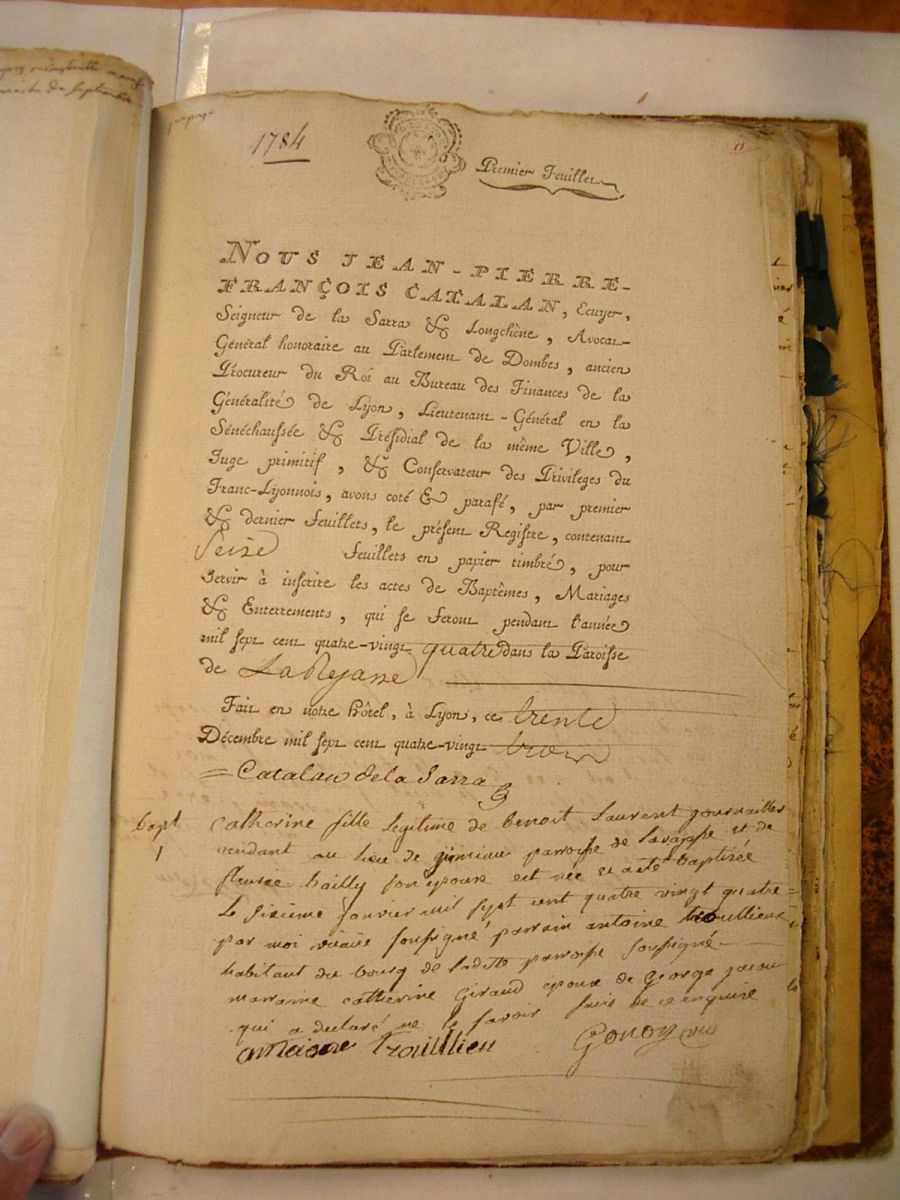 1784
Premier Feuillet
NOUS JEAN-PIERRE-
FRANÇOIS CATALAN, Ecuyer,
Seigneur de la Sarra & Longchêne, Avocat-
Général honoraire au Parlement de Dombes, ancien
Procureur du Roi au Bureau des Finances de la
Généralité de Lyon, Lieutenant-Général en la
Sénéchaussée & Présidial de la même Ville,
Juge primitif, & Conservateur des Privileges du
Franc-Lyonnois, avons coté & parafé, par premier
& dernier Feuillets, le présent Registre, contenant
Seize Feuillets en papier timbré, pour
servir à inscrire les actes de Baptêmes, Mariages
& Enterrements, qui se feront pendant l'année
mil sept cent quatre-vingt quatre dans la Paroisse
de
Fait en notre Hôtel, à Lyon, ce trente
Décembre mil sept cent quatre-vingt trois
Catalan de la Sarra
bapt catherine fille legitime de benoit laurent
1 au lieu de parroisse de et de
bailly son epouse est née et a été baptisée
le sixieme janvier mil sept cent quatre vingt quatre
par moi vicaire soussigné parrain antoine trouillieux
habitant du bourg de ladite parroisse soussigné
marraine catherine giraud epouse de george
qui a declaré ne le savoir faire de ce enquise
antoine trouillieu